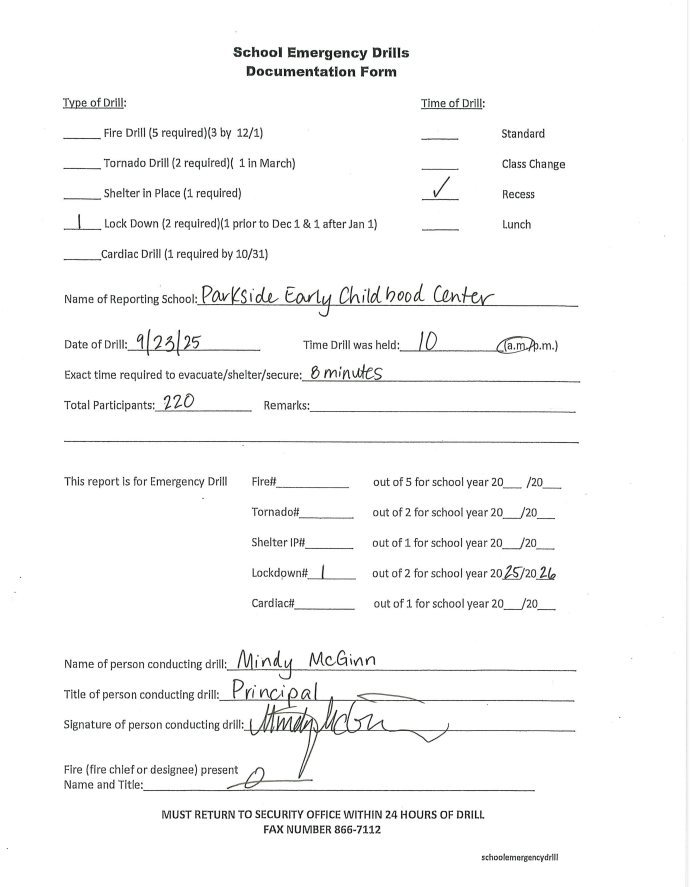 School Emergency Drills
Documentation Form
Type of Drill: Time of Drill:
______ Fire Drill (5 required)(3 by 12/1) ______ Standard
______ Tornado Drill (2 required)( 1 in March) ______ Class Change
______ Shelter in Place (1 required) __✓__ Recess
__1__ Lock Down (2 required)(1 prior to Dec 1 & 1 after Jan 1) ______ Lunch
______Cardiac Drill (1 required by 10/31)
Name of Reporting School: Parkside Early Childhood Center
Date of Drill: 9/23/25 Time Drill was held: 10 (a.m./p.m.)
Exact time required to evacuate/shelter/secure: 8 minutes
Total Participants: 220 Remarks:
This report is for Emergency Drill Fire#__________ out of 5 for school year 20___ /20___
Tornado#________ out of 2 for school year 20___/20___
Shelter IP#_______ out of 1 for school year 20___/20___
Lockdown# 1 out of 2 for school year 2025/2026
Cardiac#_________ out of 1 for school year 20___/20___
Name of person conducting drill: Mindy McGinn
Title of person conducting drill: Principal
Signature of person conducting drill:
Fire (fire chief or designee) present
Name and Title:
MUST RETURN TO SECURITY OFFICE WITHIN 24 HOURS OF DRILL
FAX NUMBER 866-7112
schoolemergencydrill